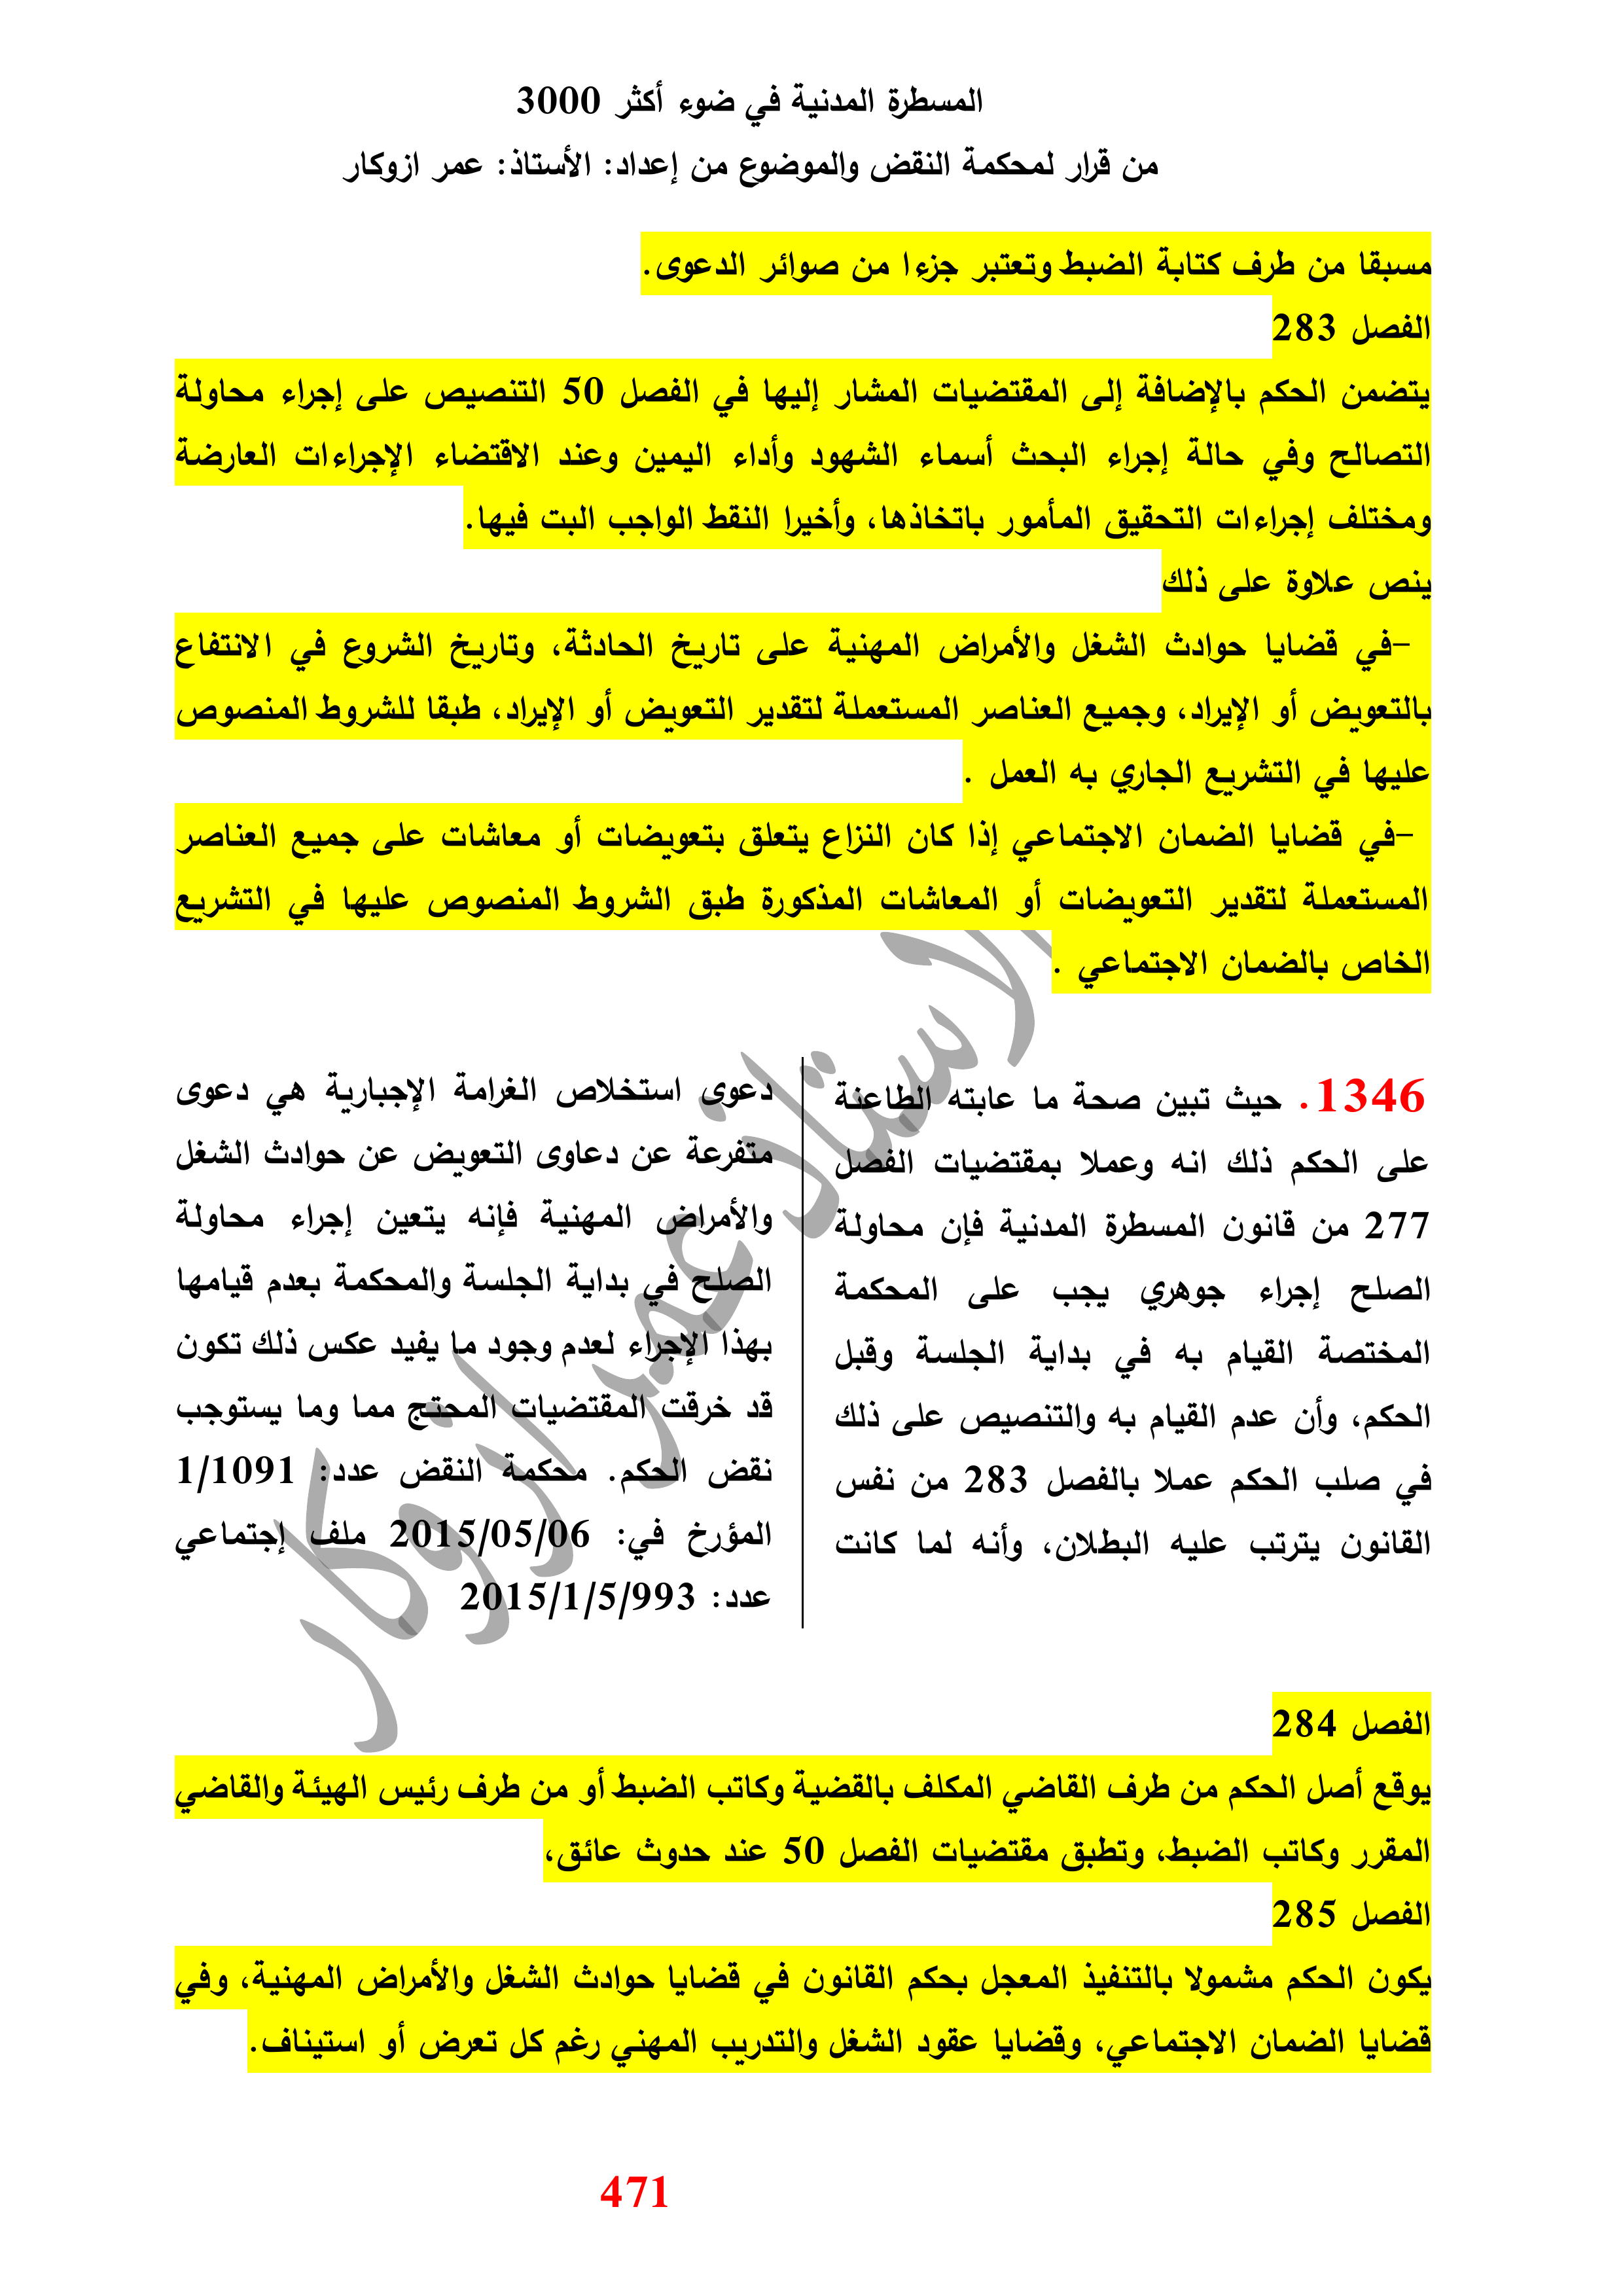 المسطرة المدنية في ضوء أكثر 3000
من قرار لمحكمة النقض والموضوع من إعداد: الأستاذ: عمر ازوكار
مسبقا من طرف كتابة الضبط وتعتبر جزءا من صوائر الدعوى.
الفصل 283
يتضمن الحكم بالإضافة إلى المقتضيات المشار إليها في الفصل 50 التنصيص على إجراء محاولة
التصالح وفي حالة إجراء البحث أسماء الشهود وأداء اليمين وعند الاقتضاء الإجراءات العارضة
ومختلف إجراءات التحقيق المأمور باتخاذها، وأخيرا النقط الواجب البت فيها.
ينص علاوة على ذلك
–في قضايا حوادث الشغل والأمراض المهنية على تاريخ الحادثة، وتاريخ الشروع في الانتفاع
بالتعويض أو الإيراد، وجميع العناصر المستعملة لتقدير التعويض أو الإيراد، طبقا للشروط المنصوص
عليها في التشريع الجاري به العمل .
–في قضايا الضمان الاجتماعي إذا كان النزاع يتعلق بتعويضات أو معاشات على جميع العناصر
المستعملة لتقدير التعويضات أو المعاشات المذكورة طبق الشروط المنصوص عليها في التشريع
الخاص بالضمان الاجتماعي .
1346. حيث تبين صحة ما عابته الطاعنة
على الحكم ذلك انه وعملا بمقتضيات الفصل
277 من قانون المسطرة المدنية فإن محاولة
الصلح إجراء جوهري يجب على المحكمة
المختصة القيام به في بداية الجلسة وقبل
الحكم، وأن عدم القيام به والتنصيص على ذلك
في صلب الحكم عملا بالفصل 283 من نفس
القانون يترتب عليه البطلان، وأنه لما كانت
دعوى استخلاص الغرامة الإجبارية هي دعوى
متفرعة عن دعاوى التعويض عن حوادث الشغل
والأمراض المهنية فإنه يتعين إجراء محاولة
الصلح في بداية الجلسة والمحكمة بعدم قيامها
بهذا الإجراء لعدم وجود ما يفيد عكس ذلك تكون
قد خرقت المقتضيات المحتج مما وما يستوجب
نقض الحكم. محكمة النقض عدد: 1/1091
المؤرخ في: 2015/05/06 ملف إجتماعي
عدد: 2015/1/5/993
الفصل 284
يوقع أصل الحكم من طرف القاضي المكلف بالقضية وكاتب الضبط أو من طرف رئيس الهيئة والقاضي
المقرر وكاتب الضبط، وتطبق مقتضيات الفصل 50 عند حدوث عائق،
الفصل 285
يكون الحكم مشمولا بالتنفيذ المعجل بحكم القانون في قضايا حوادث الشغل والأمراض المهنية، وفي
قضايا الضمان الاجتماعي، وقضايا عقود الشغل والتدريب المهني رغم كل تعرض أو استيناف.
471
الاستاذ عمر ازوكار